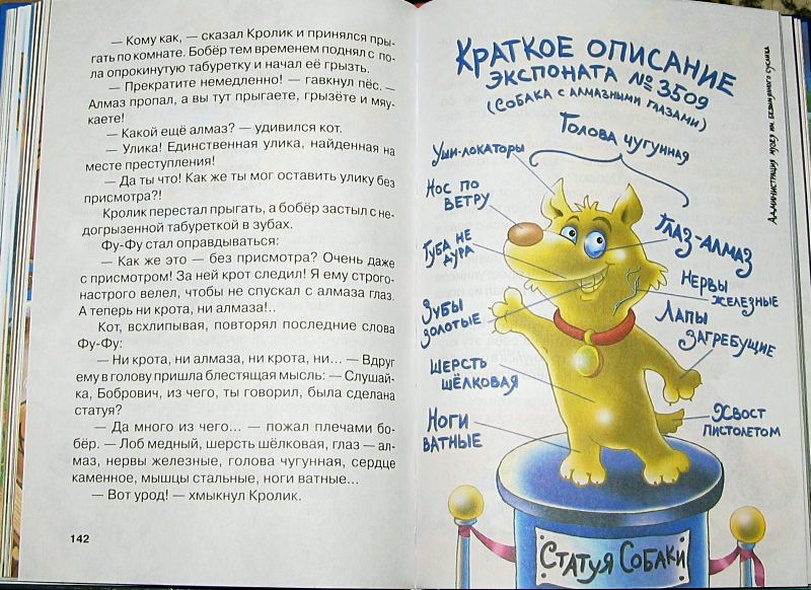 — Кому как, — сказал Кролик и принялся пры-
гать по комнате. Бобёр тем временем поднял с по-
ла опрокинутую табуретку и начал её грызть.
— Прекратите немедленно! — гавкнул пёс. —
Алмаз пропал, а вы тут прыгаете, грызёте и мяу-
каете!
— Какой ещё алмаз? — удивился кот.
— Улика! Единственная улика, найденная на
месте преступления!
— Да ты что! Как же ты мог оставить улику без
присмотра?!
Кролик перестал прыгать, а бобёр застыл с не-
догрызенной табуреткой в зубах.
Фу-Фу стал оправдываться:
— Как же это — без присмотра? Очень даже
с присмотром! За ней крот следил! Я ему строго-
настрого велел, чтобы не спускал с алмаза глаз.
А теперь ни крота, ни алмаза!..
Кот, всхлипывая, повторял последние слова
Фу-Фу:
— Ни крота, ни алмаза, ни крота, ни... — Вдруг
ему в голову пришла блестящая мысль: — Слушай-
ка, Бобрович, из чего, ты говорил, была сделана
статуя?
— Да много из чего... — пожал плечами бо-
бёр. — Лоб медный, шерсть шёлковая, глаз — ал-
маз, нервы железные, голова чугунная, сердце
каменное, мышцы стальные, ноги ватные...
— Вот урод! — хмыкнул Кролик.
142
КРАТКОЕ ОПИСАНИЕ
ЭКСПОНАТА № 3509
(СОБАКА С АЛМАЗНЫМИ ГЛАЗАМИ)
ГОЛОВА ЧУГУННАЯ
УШИ-ЛОКАТОРЫ
НОС ПО
ВЕТРУ
ГУБА НЕ
ДУРА
ГЛАЗ-АЛМАЗ
НЕРВЫ
ЖЕЛЕЗНЫЕ
ЗУБЫ
ЗОЛОТЫЕ
ЛАПЫ
ЗАГРЕБУЩИЕ
ШЕРСТЬ
ШЁЛКОВАЯ
НОГИ
ВАТНЫЕ
ХВОСТ
ПИСТОЛЕТОМ
СТАТУЯ СОБАКИ
АДМИНИСТРАЦИЯ МУЗЕЯ ИМ. БЕЗЫМЯННОГО СУСЛИКА